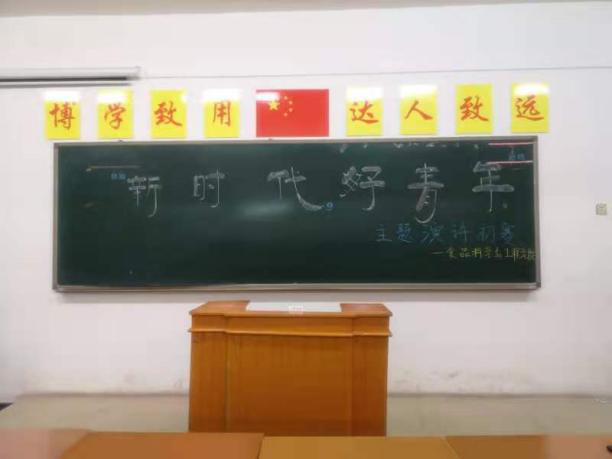 博学致用 达人致远
新时代好青年
主题演讲初赛
—食品科学与工程学院